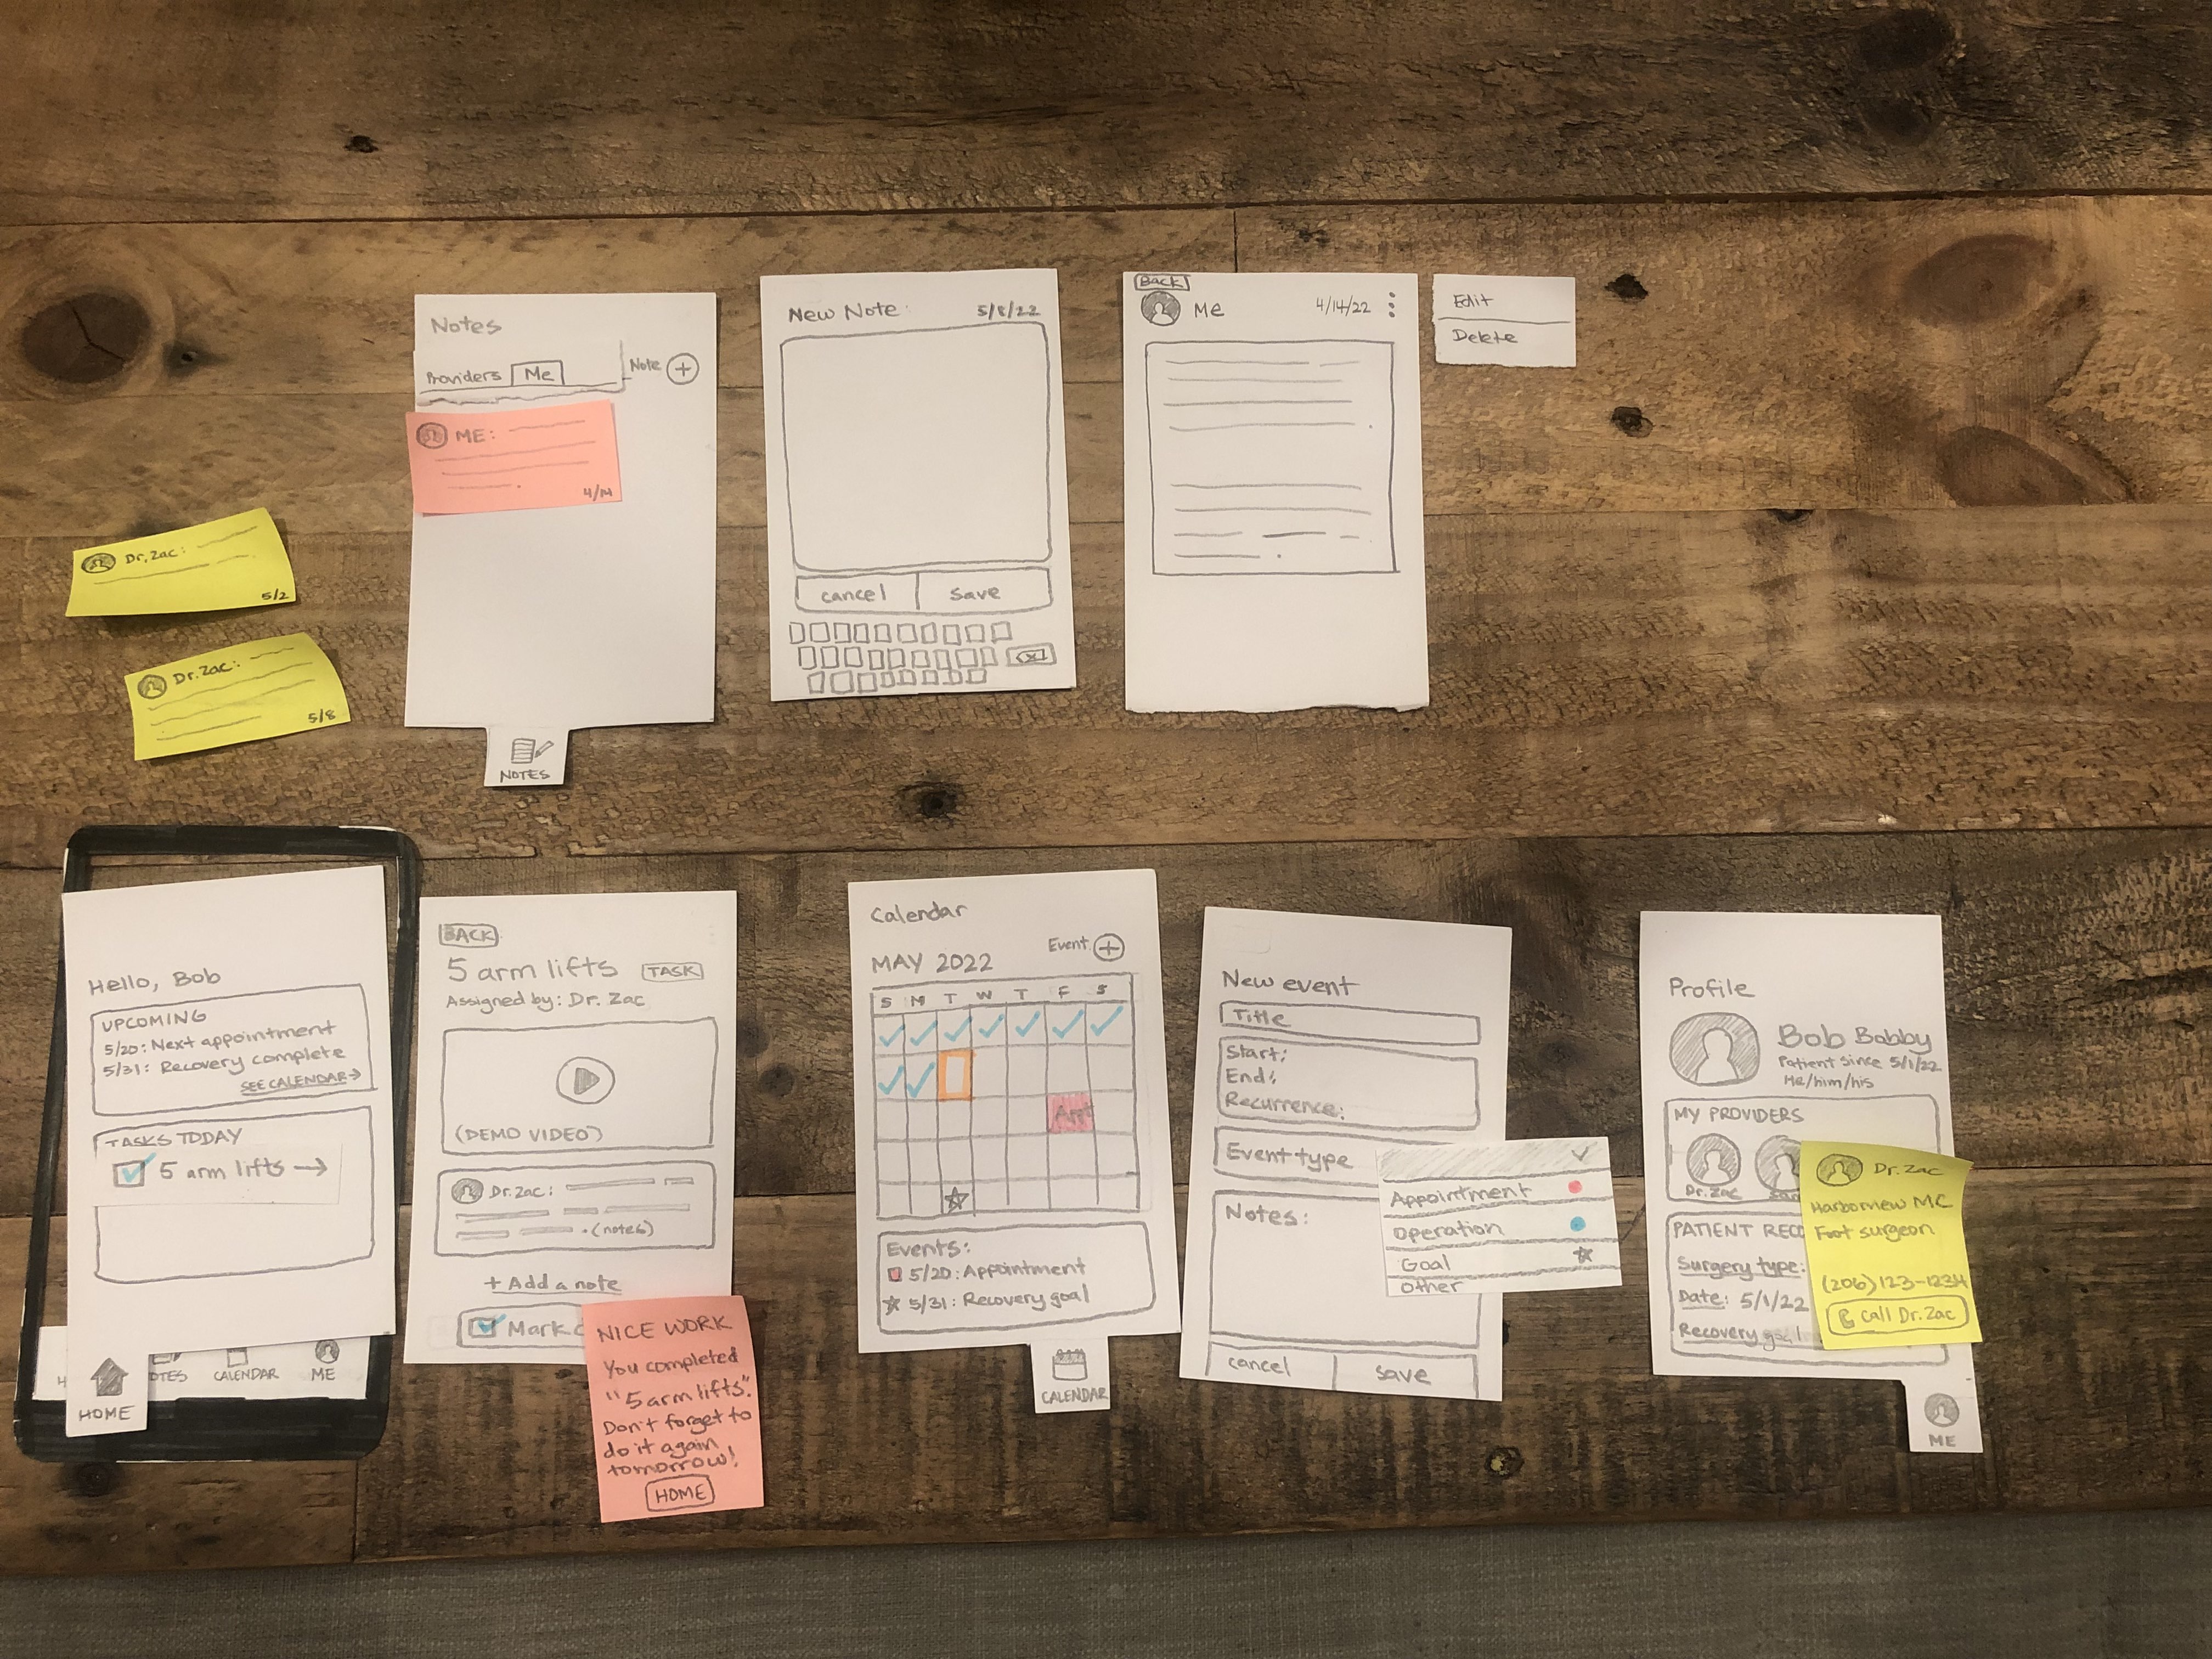 Notes
Providers
Me
Note +
ME:
4/14
NOTES
Dr. Zac:
5/2
Dr. Zac:
5/8
New Note:
5/8/22
cancel
save
BACK
Me
4/14/22
Edit
Delete
Hello, Bob
UPCOMING
5/20: Next appointment
5/31: Recovery complete
SEE CALENDAR→
TASKS TODAY
5 arm lifts →
HOME
OTES
CALENDAR
ME
BACK
5 arm lifts
TASK
Assigned by: Dr. Zac
(DEMO VIDEO)
Dr. Zac:
. (notes)
+ Add a note
Mark c
NICE WORK
You completed
"5 arm lifts".
Don't forget to
do it again
tomorrow!
HOME
Calendar
Event +
MAY 2022
S M T W T F S
Appt
Events:
5/20: Appointment
5/31: Recovery goal
CALENDAR
New event
Title
Start:
End:
Recurrence:
Event type
Appointment
Operation
Goal
Other
Notes:
cancel
save
Profile
Bob Bobby
Patient since 5/1/22
He/him/his
MY PROVIDERS
Dr. Zac
PATIENT RECO
Surgery type:
Date: 5/1/22
Recovery goal
Dr. Zac
Harborview MC
Foot surgeon
(206)123-1234
Call Dr. Zac
ME